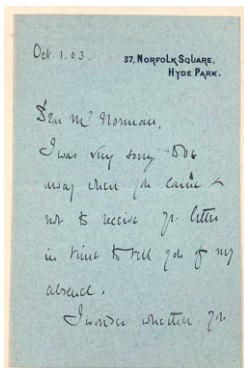 Oct. 1. 03.
37, NORFOLK SQUARE,
HYDE PARK.
Dear Mr Norman,
I was very sorry to be
away when you came &
not to receive yr. letter
in time to tell you of my
absence.
I wonder whether you